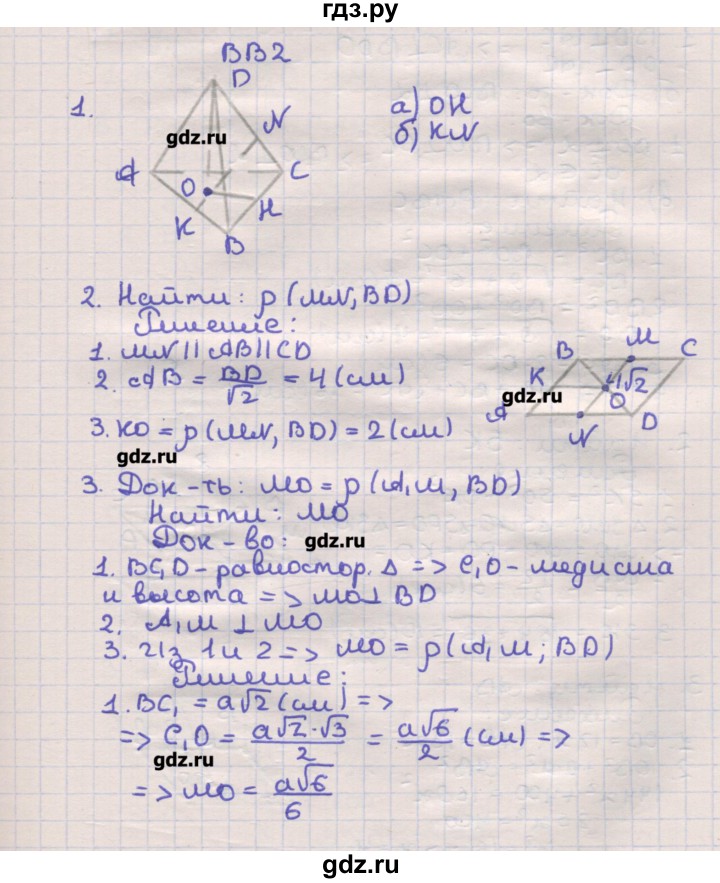 гдз.ру
ВВ2
1.
D
N
A
C
O
K
H
B
а) OH
б) KN
gdz.ru
2. Найти: ρ(MN, BD)
Решение:
1. MN || AB || CD
2. AB = BD/√2 = 4 (см)
3. KO = ρ(MN, BD) = 2 (см)
B
M
C
K
4√2
O
A
N
D
gdz.ru
gdz.ru
3. Док-ть: MO = ρ(A₁M, BD)
Найти: MO
Док-во:
gdz.ru
1. BC₁D - равностор. Δ => C₁O - медиана
и высота => MO ⊥ BD
2. A₁M ⊥ MO
3. Из 1 и 2 => MO = ρ(A₁M; BD)
Решение:
1. BC₁ = a√2 (см) =>
=> C₁O = a√2·√3/2 = a√6/2 (см) =>
gdz.ru
=> MO = a√6/6
gdz.ru